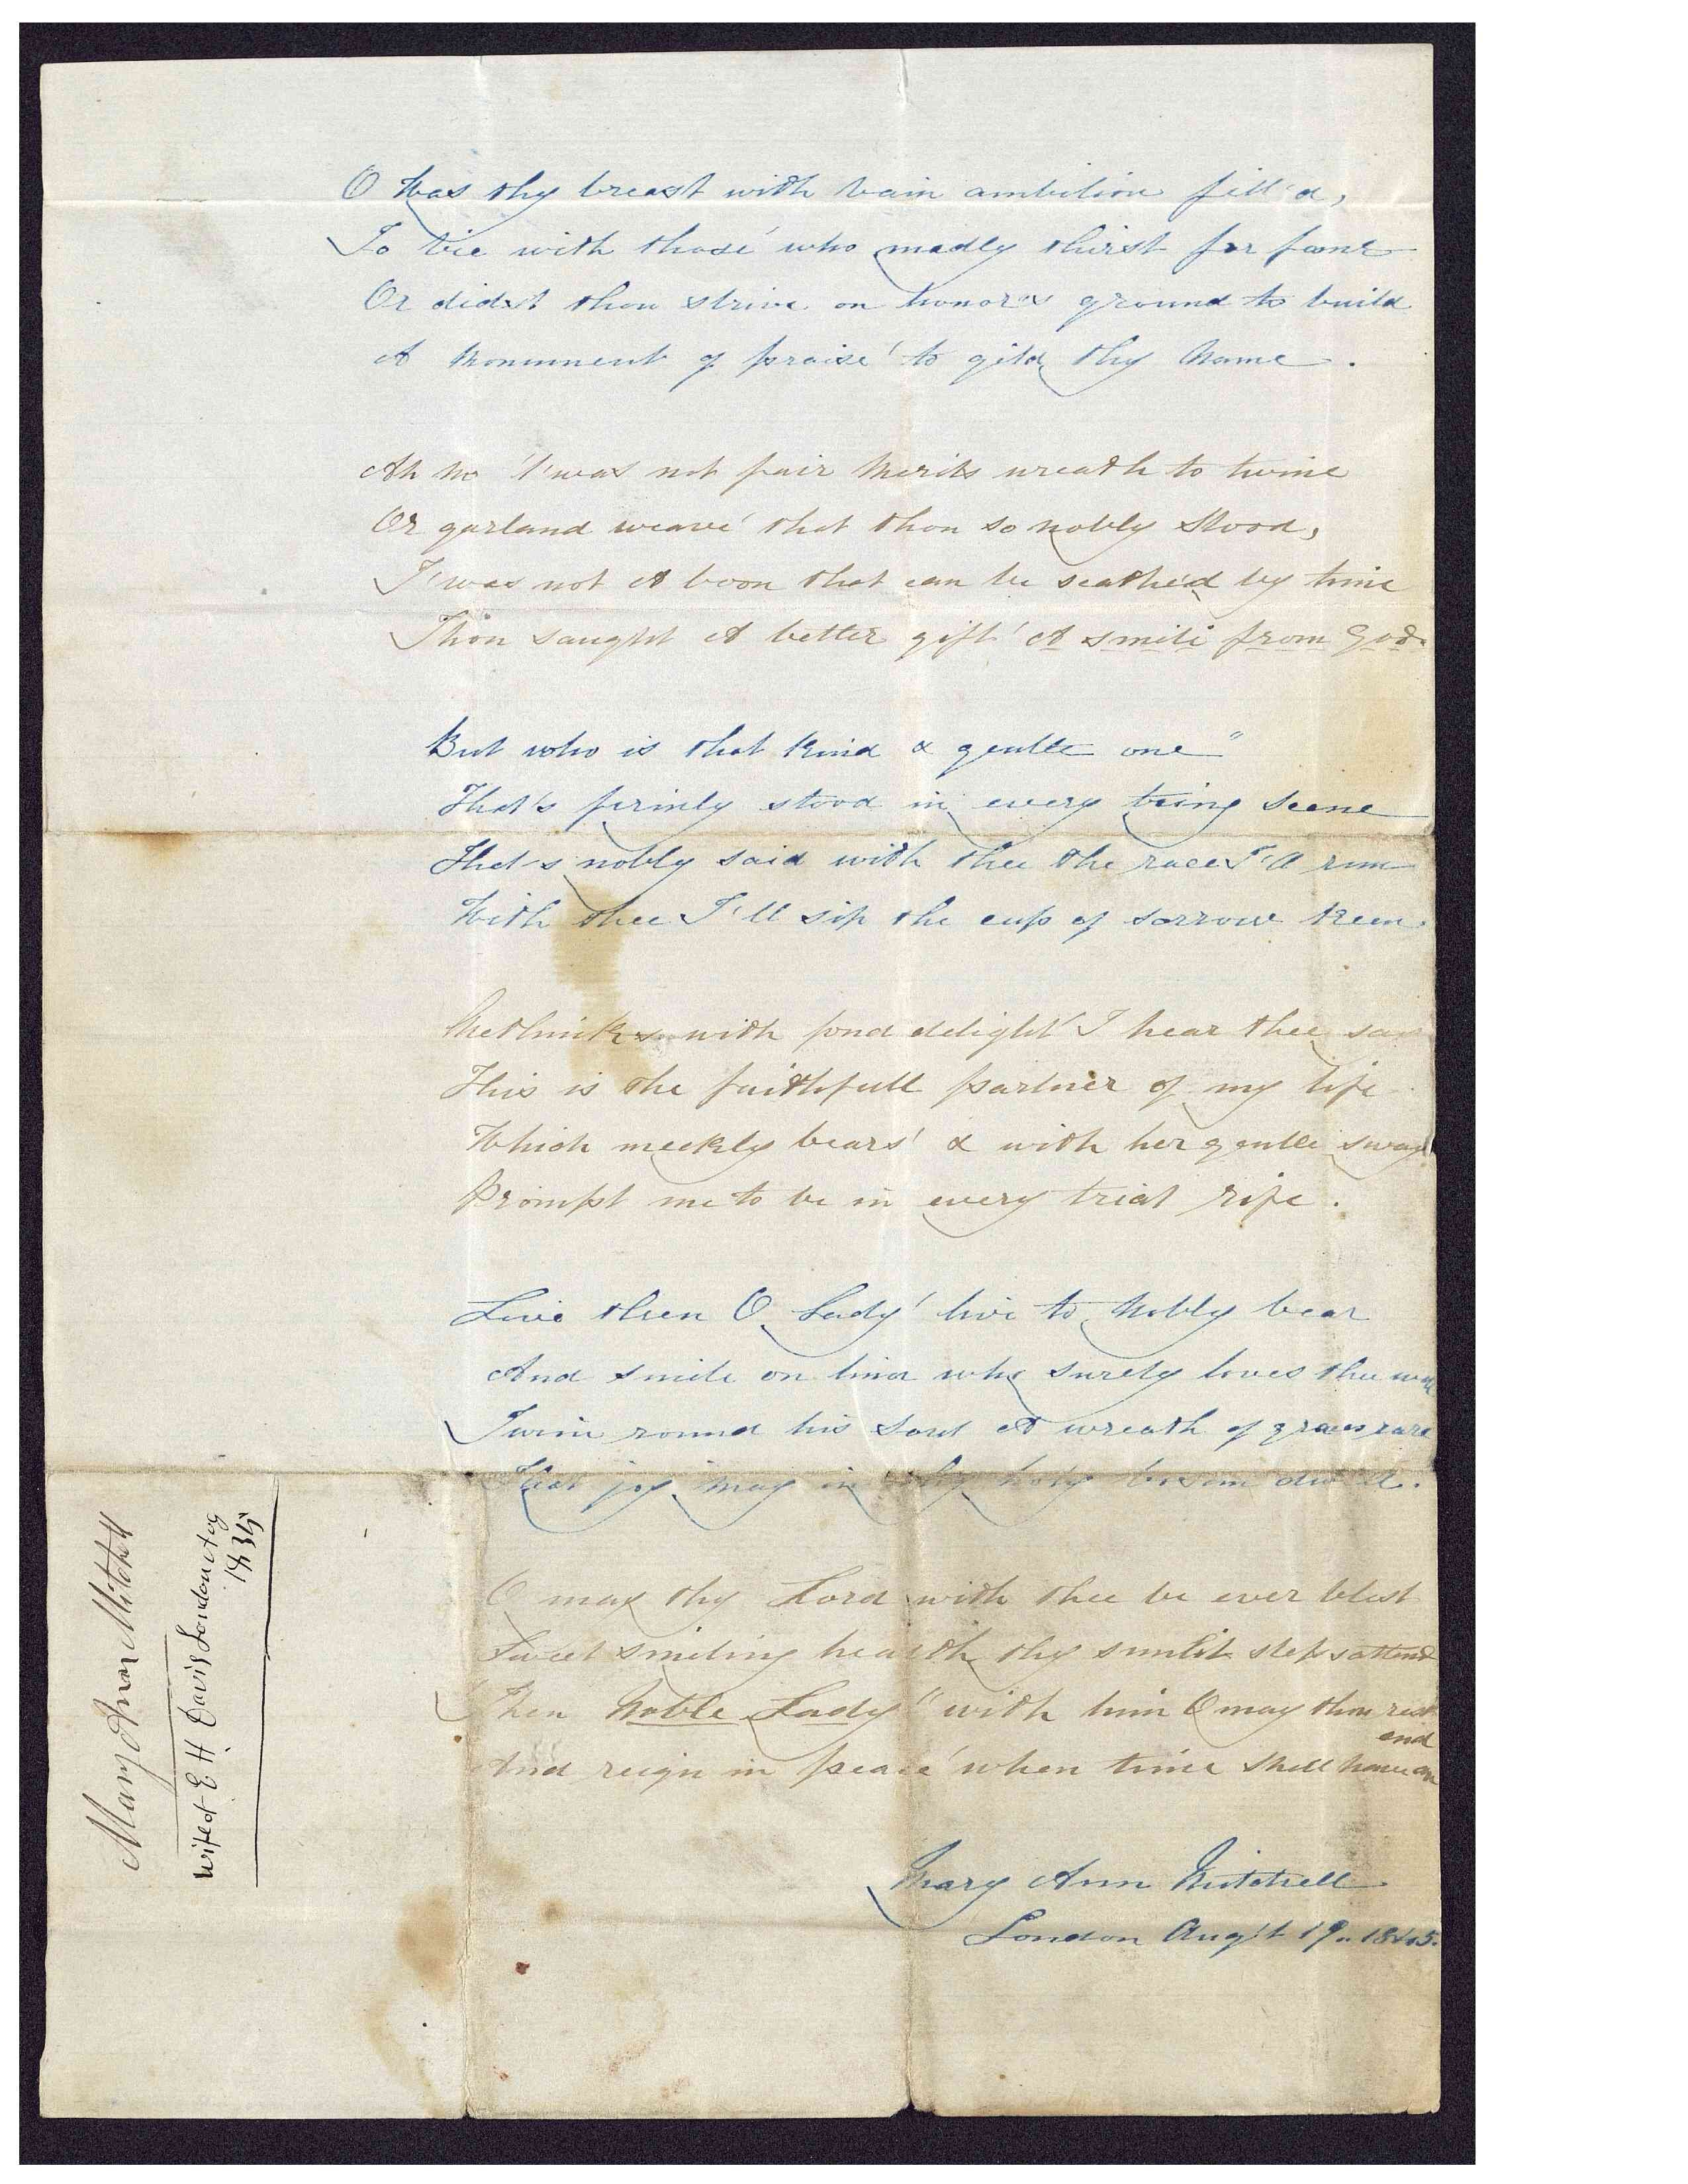 O was thy breast with vain ambition fill'd,
To vie with those' who madly thirst for fame
Or didst thou strive on honor's ground to build
A Monument of praise' to gild thy Name .
Ah no 'twas not fair Merits wreath to twine
Or garland weave' that thou so nobly Stood,
T'was not A boon that can be scathe'd by time
Thou saught A better gift' A smile from God.
But who is that Kind & gentle one"
That's firmly stood in every tring scene
That's nobly said with thee the race I'll run
With thee I'll sip the cup of sorrow Keen.
Methinks with fond delight' I hear thee say
This is the faithfull partner of my life
Which meekly bears' & with her gentle sway
Prompt me to be in every trial rife .
Live then O Lady' live to Nobly bear
And smile on him who surely loves thee well
Twine round his soul A wreath of graces rare
That joy may in thy holy bosom dwell.
O may thy Lord with thee be ever blest
Sweet smiling health thy sunlit steps attend
Then Noble Lady" with him O may thou rest
And reign in peace' when time shall have an end
Mary Ann Mitchell
London Aug't 19.. 1845.
Mary Ann Mitchell
wife of E. H. Davis London Aug
1845